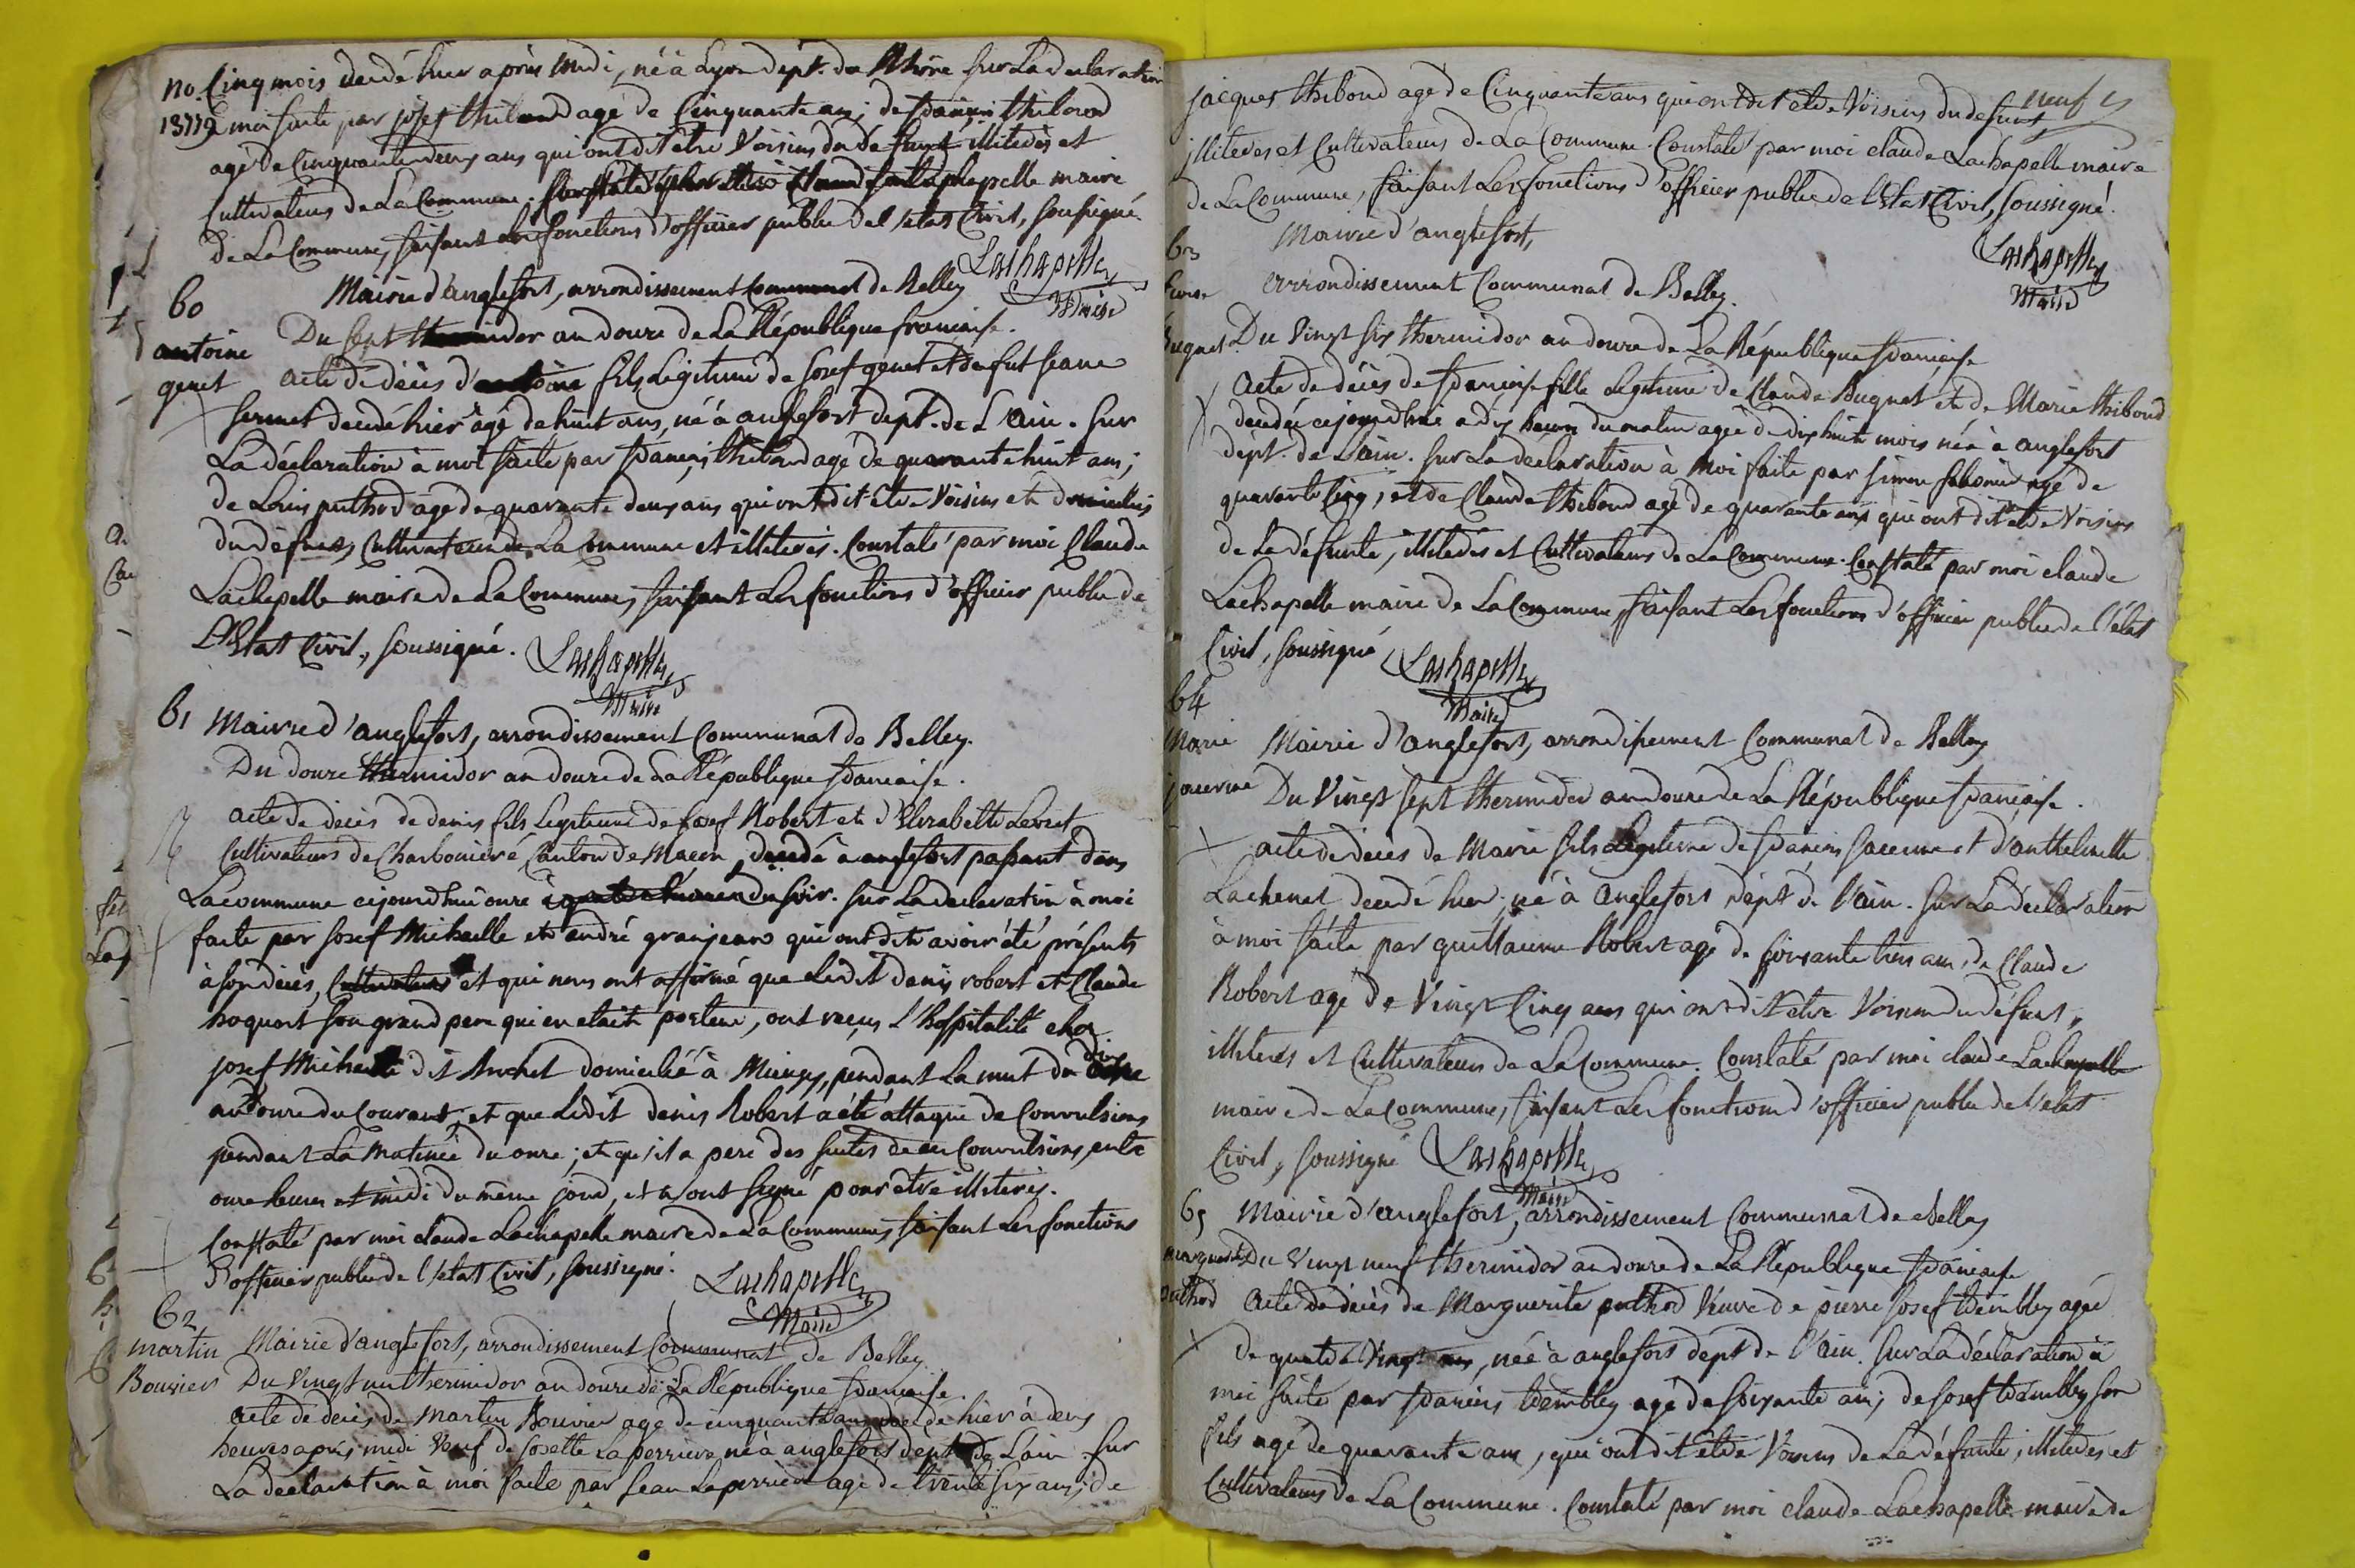 no. Cinq mois decedé hier après midi, né à Lyon dépt. du Rhône sur La declaration
13779 à moi faite par josef thiboud agé de Cinquante ans; de francois thiboud
agé de Cinquante deux ans qui ont dit etre Voisins du défunt illiterés et
Cultivateurs de La Commune. Constaté par moi Claude Lachapelle maire
de La Commune, faisant les fonctions d'officier public de l'etat Civil, soussigné.
Lachapelle
Maire
60 Mairie d'anglefort, arrondissement Communal de Belley
antoine Du sept thermidor an douze de La République francaise.
genet acte de décès d'antoine fils Légitime de Josef genet et de fut Jeane
sermet decedé hier agé de huit ans, né à anglefort dept. de L'ain. Sur
La déclaration à moi faite par francois thiboud agé de quarante huit ans;
de Louis puthod agé de quarante deux ans qui ont dit etre Voisins et
du défunt, Cultivateurs de La Commune et illiterés. Constaté par moi Claude
Lachapelle maire de La Commune, faisant Les fonctions d'officier public de
L'Etat Civil, soussigné. Lachapelle
Maire
61 Mairie d'anglefort, arrondissement Communal de Belley.
Du douze thermidor an douze de La République francaise.
acte de décès de denis fils Legitime de Josef Robert et d'Elisabette Levret
Cultivateurs de Charbonieré Canton de Macon, decedé à anglefort passant dans
La commune cejourdhui onze à quatre heures du soir. Sur La declaration à moi
faite par Josef Michaille et andré granjean qui ont dit avoir été présents
à son décès, Cultivateurs et qui nous ont affirmé que Ledit denis robert et Claude
hoquart son grand pere qui en etait porteur, ont reçus L'hospitalité chez
josef Michaille dit Anchet domicilié à Miengy, pendant La nuit du dix
au onze du Courant, et que Ledit denis Robert a été attaqué de Convulsions
pendant La matinée du onze; et qu'il a peri des suites de ces Convulsions, entre
onze heures et midi du même jour, et n'ont signé pour etre illiterés.
Constaté par moi claude Lachapelle maire de La Commune, faisant Les fonctions
d'officier public de l'etat Civil, soussigné. Lachapelle
Maire
62
martin Mairie d'anglefort, arrondissement Communal de Belley.
Bouvier Du Vingt un thermidor an douze de La République francaise.
acte de décès de Martin Bouvier agé de cinquante ans decedé hier à deux
heures après midi Veuf de Josette Laperriere né à anglefort dépt. de Lain. Sur
La declaration à moi faite par Jean Laperriere agé de trente six ans; de
neuf
jacques thiboud agé de Cinquante ans qui ont dit etre Voisins du defunt
illiterés et Cultivateurs de La Commune. Constaté par moi claude Lachapelle maire
de La Commune, faisant Les fonctions d'officier public de l'Etat Civil, soussigné.
Lachapelle
Maire
63 Mairie d'anglefort,
arrondissement Communal de Belley.
Buguet Du Vingt six thermidor an douze de La République francaise
Acte de décès de francoise fille Légitime de Claude Buguet et de Marie thiboud
decedée cejourdhui à dix heures du matin agée de dix huit mois née à anglefort
dépt. de L'ain. Sur La declaration à Moi faite par Simon agé de
quarante Cinq, et de Claude thiboud agé de quarante ans qui ont dit etre Voisins
de La défunte, illiterés et Cultivateurs de La Commune. Constaté par moi claude
Lachapelle maire de La Commune, faisant Les fonctions d'officier public de l'état
Civil, soussigné Lachapelle
Maire
64
Marie Mairie d'anglefort, arrondissement Communal de Belley
jacerme Du Vingt sept thermidor an douze de La République francaise.
acte de décès de Marie fils Légitime de francois jacerme et d'anthelmette
Lachenal decedé hier; né à anglefort dépt. de l'ain. Sur La déclaration
à moi faite par guillaume Robert agé de soixante trois ans, de Claude
Robert agé de Vingt Cinq ans qui ont dit etre Voisins du défunt,
illiterés et Cultivateurs de La Commune. Constaté par moi claude Lachapelle
maire de La Commune, faisant Les fonctions d'officier public de l'etat
Civil, soussigné Lachapelle
Maire
65 Mairie d'anglefort, arrondissement Communal de Belley
marguerite Du Vingt neuf thermidor an douze de La République francaise
puthod Acte de décès de Marguerite puthod Veuve de pierre Josef agée
de quatre Vingt ans, née à anglefort dépt. de l'ain. Sur La déclaration à
moi faite par francois agé de soixante ans; de Josef son
fils agé de quarante ans, qui ont dit etre Voisins de La défunte, illiterés et
Cultivateurs de La Commune. Constaté par moi claude Lachapelle maire de